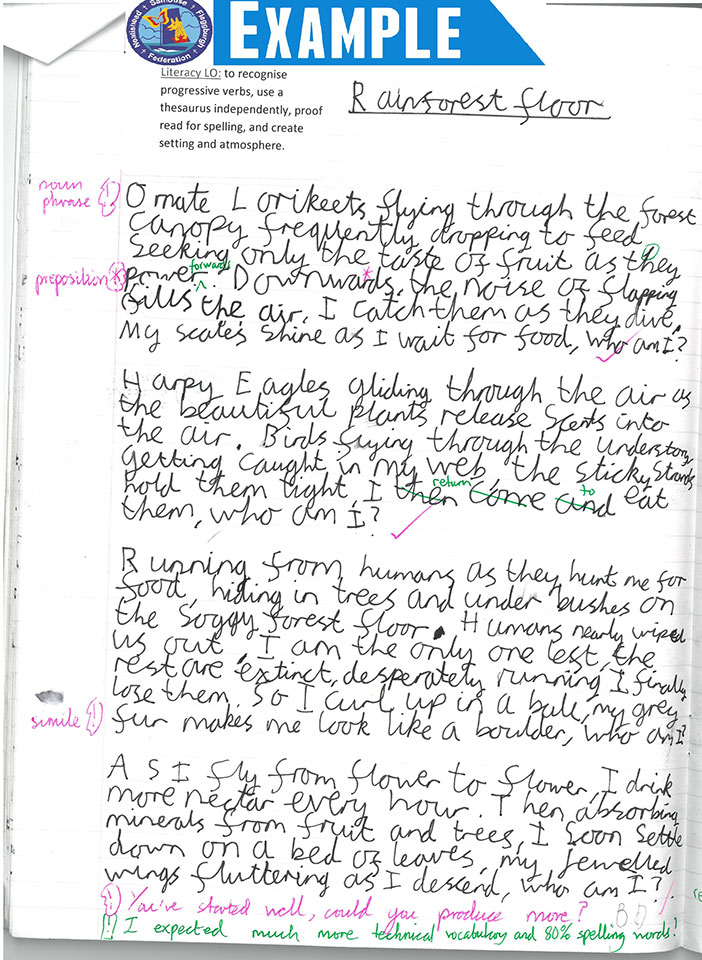 Sanhouse
Federation
EXAMPLE
Literacy LO: to recognise
progressive verbs, use a
thesaurus independently, proof
read for spelling, and create
setting and atmosphere.
Rainforest floor
noun
phrase
Ornate Lorikeets flying through the forest
canopy frequently dropping to feed
Seeking only the taste of fruit as they
preposition
forwards
power. Downwards, the noise of flapping
fills the air. I catch them as they dive.
My scales shine as I wait for food, who am I?
Harpy Eagles gliding through the air as
the beautiful plants release scents into
the air. Birds flying through the understory
getting caught in my web, the sticky strands
return to
hold them tight, I then come and eat
them, who am I?
Running from humans as they hunt me for
food, hiding in trees and under bushes on
the soggy forest floor. Humans nearly wiped
us out. I am the only one lest, the
rest are extinct, desperately running I finally
lose them. So I curl up in a ball, my grey
simile
fur makes me look like a boulder, who am I?
AS I fly from flower to flower, I drink
more nectar every hour. Then absorbing
minerals from fruit and trees, I soon settle
down on a bed of leaves, my jewelled
wings fluttering as I descend, who am I?
You've started well, could you produce more?
I expected much more technical vocabulary and 80% spelling words!